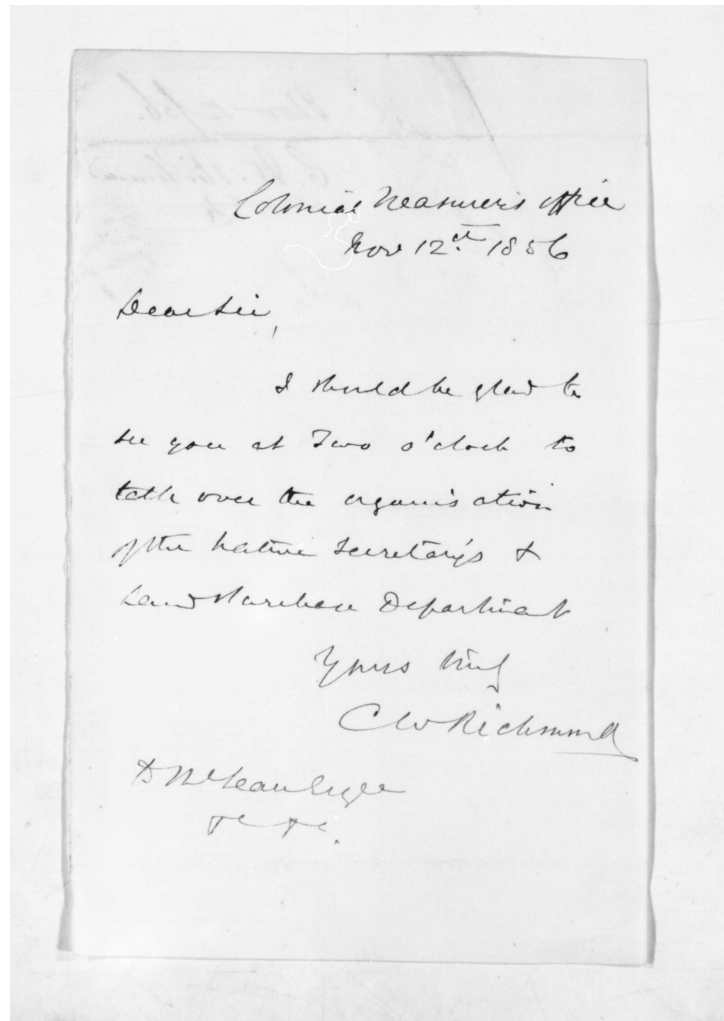 Colonial Treasurer's Office
Nov 12th. 1856
Dear Sir,
I should be glad to
see you at Two o'clock to
talk over the organisation
of the Native Secretary's &
Land Purchase Department
Yours truly
CW Richmond
D McLean Esqre
&c &c.